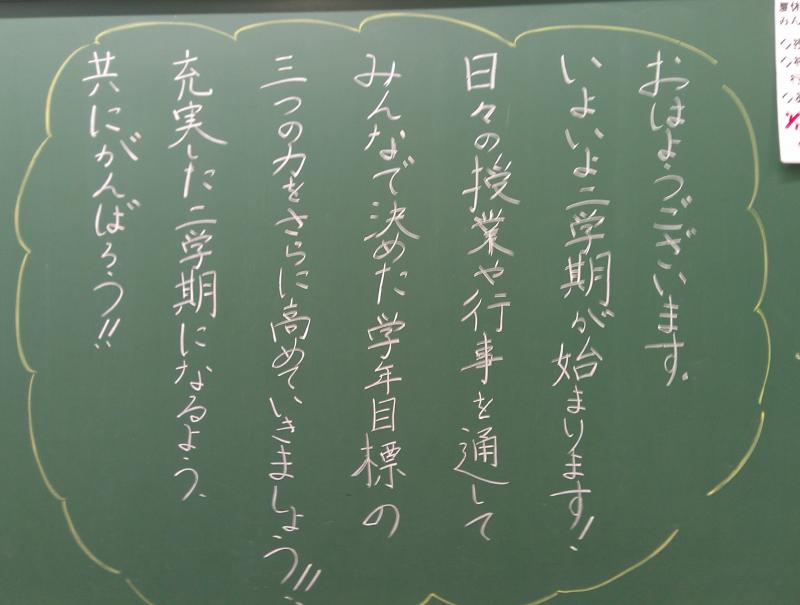 おはようございます。
いよいよ二学期が始まります!
日々の授業や行事を通して
みんなで決めた学年目標の
三つの力をさらに高めていきましょう!!
充実した二学期になるよう、
共にがんばろう!!
夏休
みん